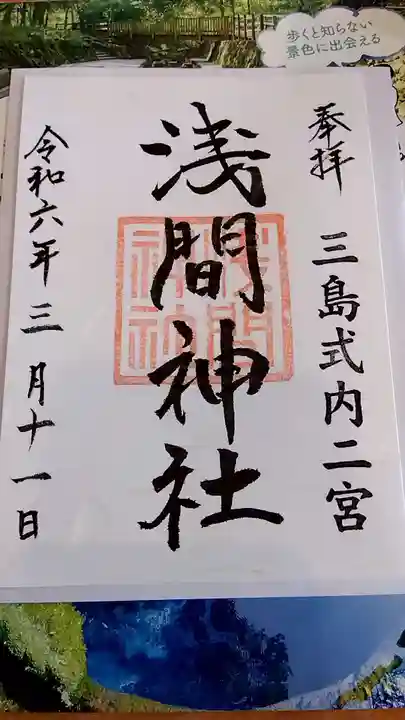 歩くと知らない
景色に出会える
奉拝
三島式内二宮
浅間神社
令和六年三月十一日